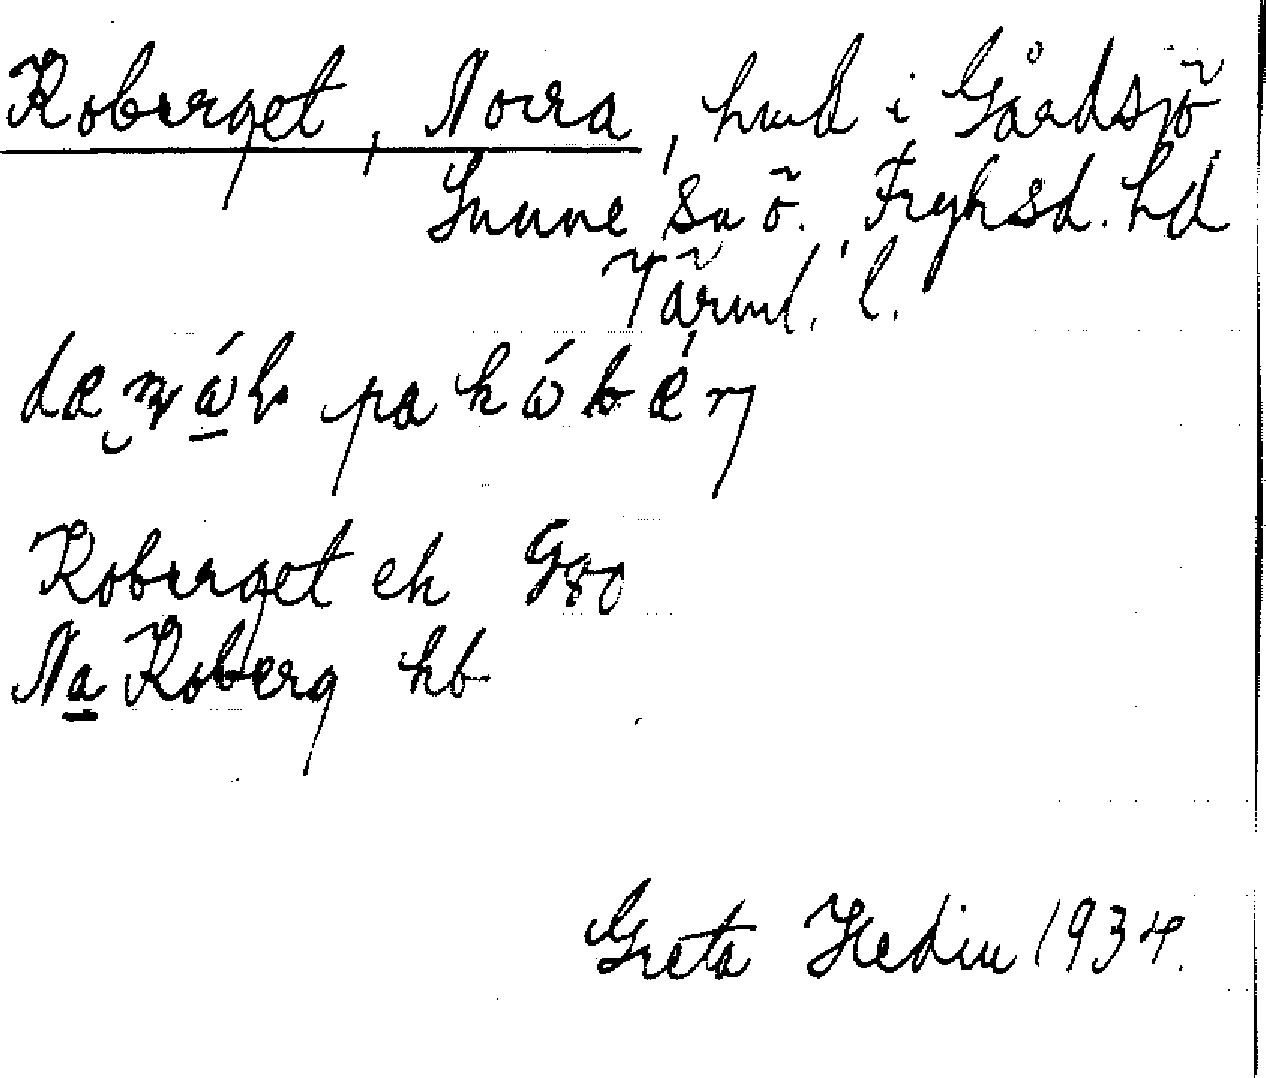 Koberget, Norra, hmd i Gårdsjö
Sunne sn ö. Fryksd. hd
Värml. l.
pa
Koberget ek G80
Na Koberg hb
Greta Hedin 1934.